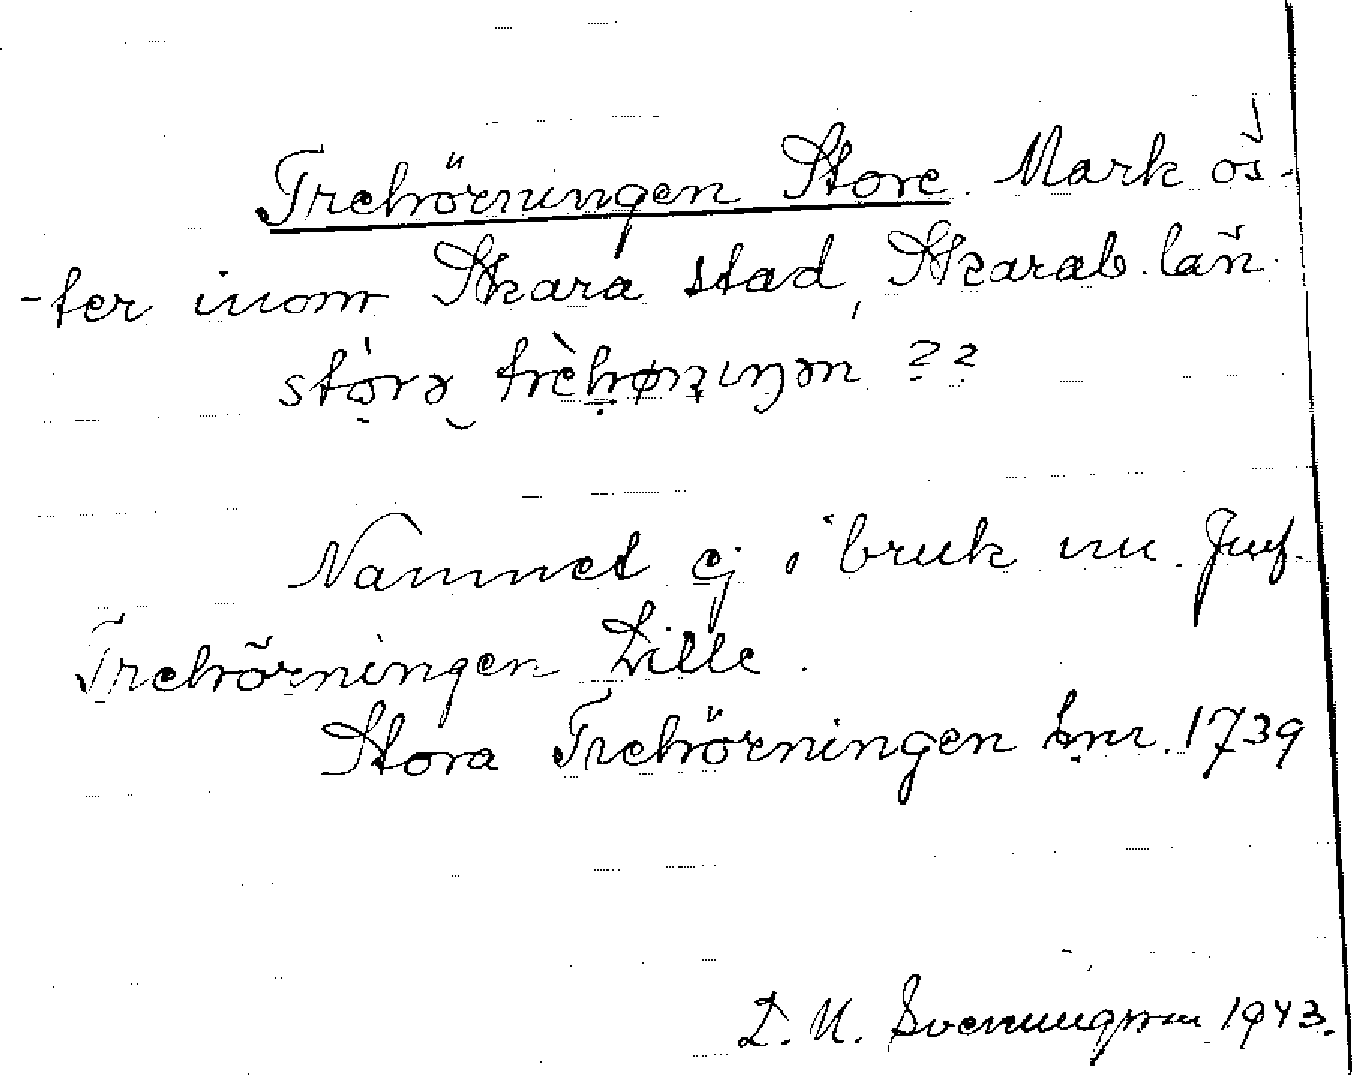 Trehörningen Store. Mark ös-
-ter inom Skara stad, Skarab. län.
Namnet ej i bruk nu. Jmf.
Trehörningen Lille.
Stora Trehörningen Lmr. 1739
D. M. Svenungsson 1943.